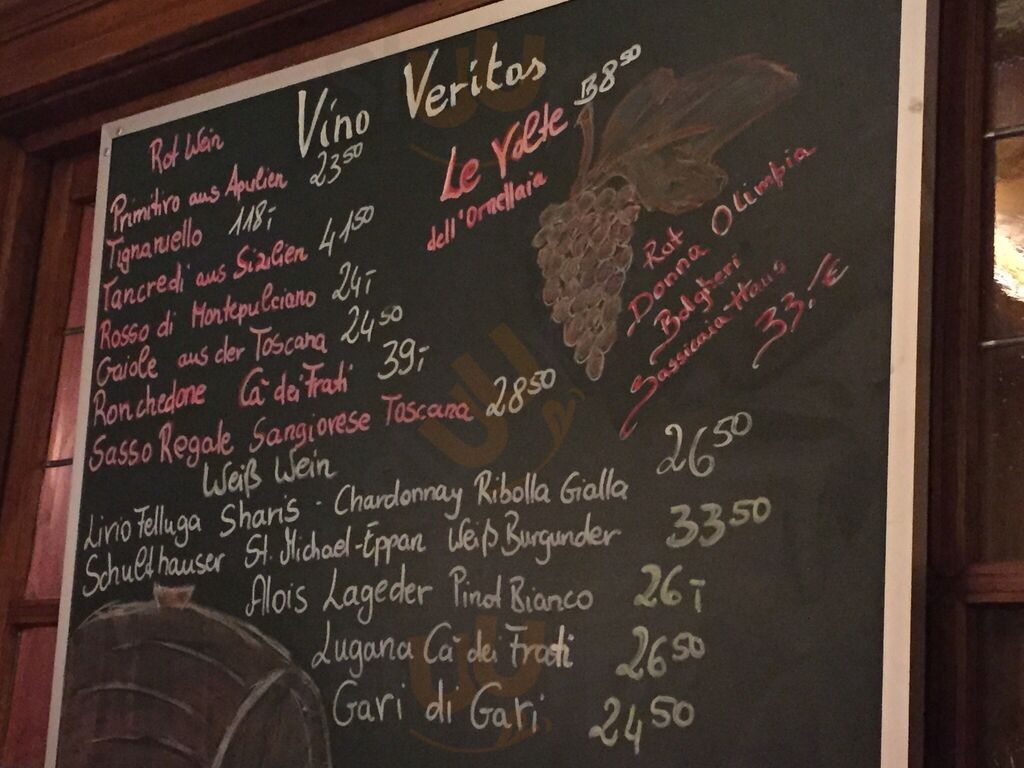 Vino Veritas
Rot Wein
Primitivo aus Apulien 23⁵⁰
Tignaniello 118,-
Tancredi aus Sizilien 41⁵⁰
Rosso di Montepulciano 24,-
Gaiole aus der Toscana 24⁵⁰
Ronchedone Cà dei Frati 39,-
Sasso Regale Sangiovese Toscana 28⁵⁰
Le Volte 38⁵⁰
dell'Ornellaia
Rot
Donna Olimpia
Bolgheri
Sassicaia-Haus
33,-€
Weiß Wein
Livio Felluga Sharis - Chardonnay Ribolla Gialla 26⁵⁰
Schulthauser St. Michael-Eppan Weiß Burgunder 33⁵⁰
Alois Lageder Pinot Bianco 26,-
Lugana Cà dei Frati 26⁵⁰
Gavi di Gavi 24⁵⁰